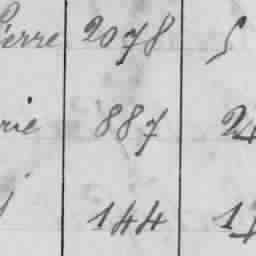 ierre 2078 5
rie 887 24
144 1